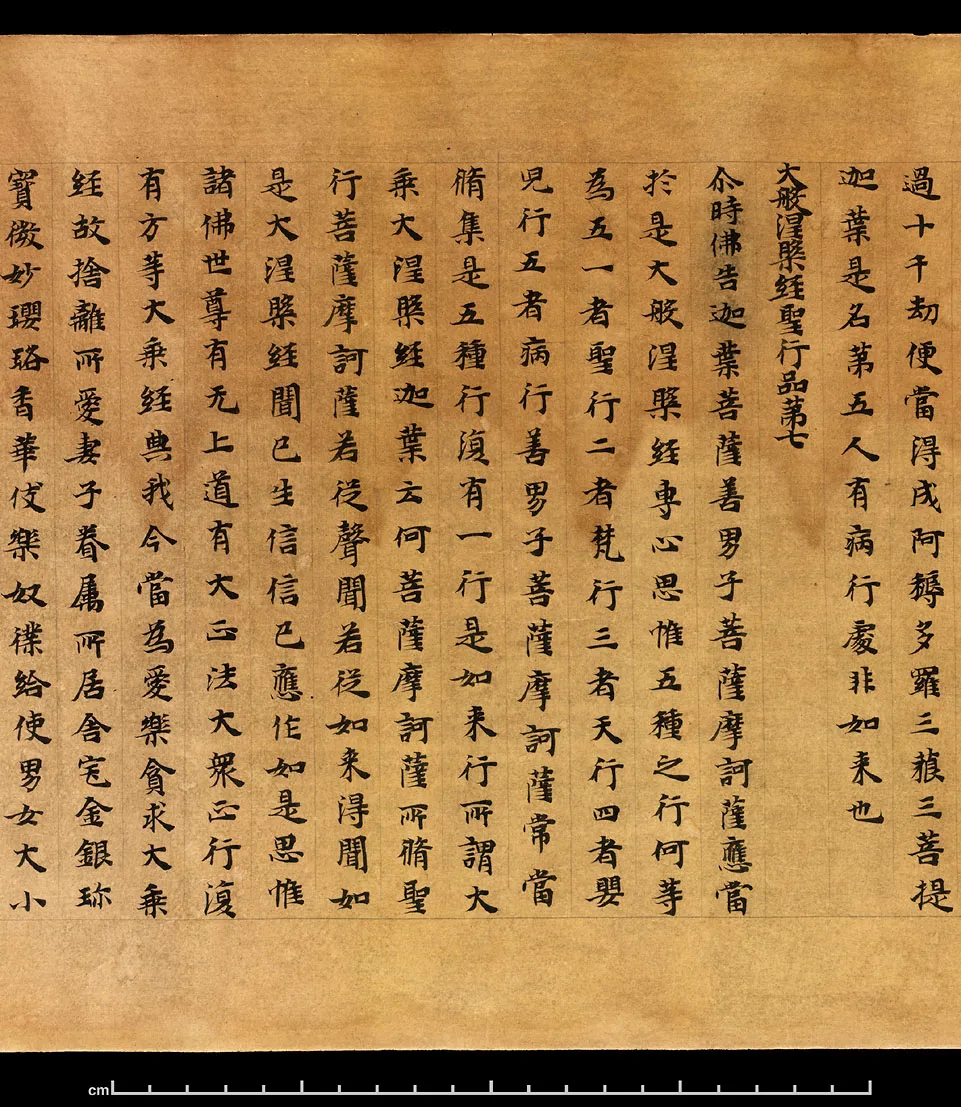 過十千劫便當得成阿耨多羅三藐三菩提
迦葉是名第五人有病行處非如来也
大般涅槃經聖行品第七
尒時佛告迦葉菩薩善男子菩薩摩訶薩應當
於是大般涅槃經專心思惟五種之行何等
為五一者聖行二者梵行三者天行四者嬰
児行五者病行善男子菩薩摩訶薩常當
脩集是五種行復有一行是如来行所謂大
乘大涅槃經迦葉云何菩薩摩訶薩所脩聖
行菩薩摩訶薩若從聲聞若從如来得聞如
是大涅槃經聞已生信信已應作如是思惟
諸佛世尊有无上道有大正法大衆正行復
有方等大乘經典我今當為愛樂貪求大乘
經故捨離所愛妻子眷属所居舍宅金銀珎
寶微妙瓔珞香華伎樂奴僕給使男女大小
cm